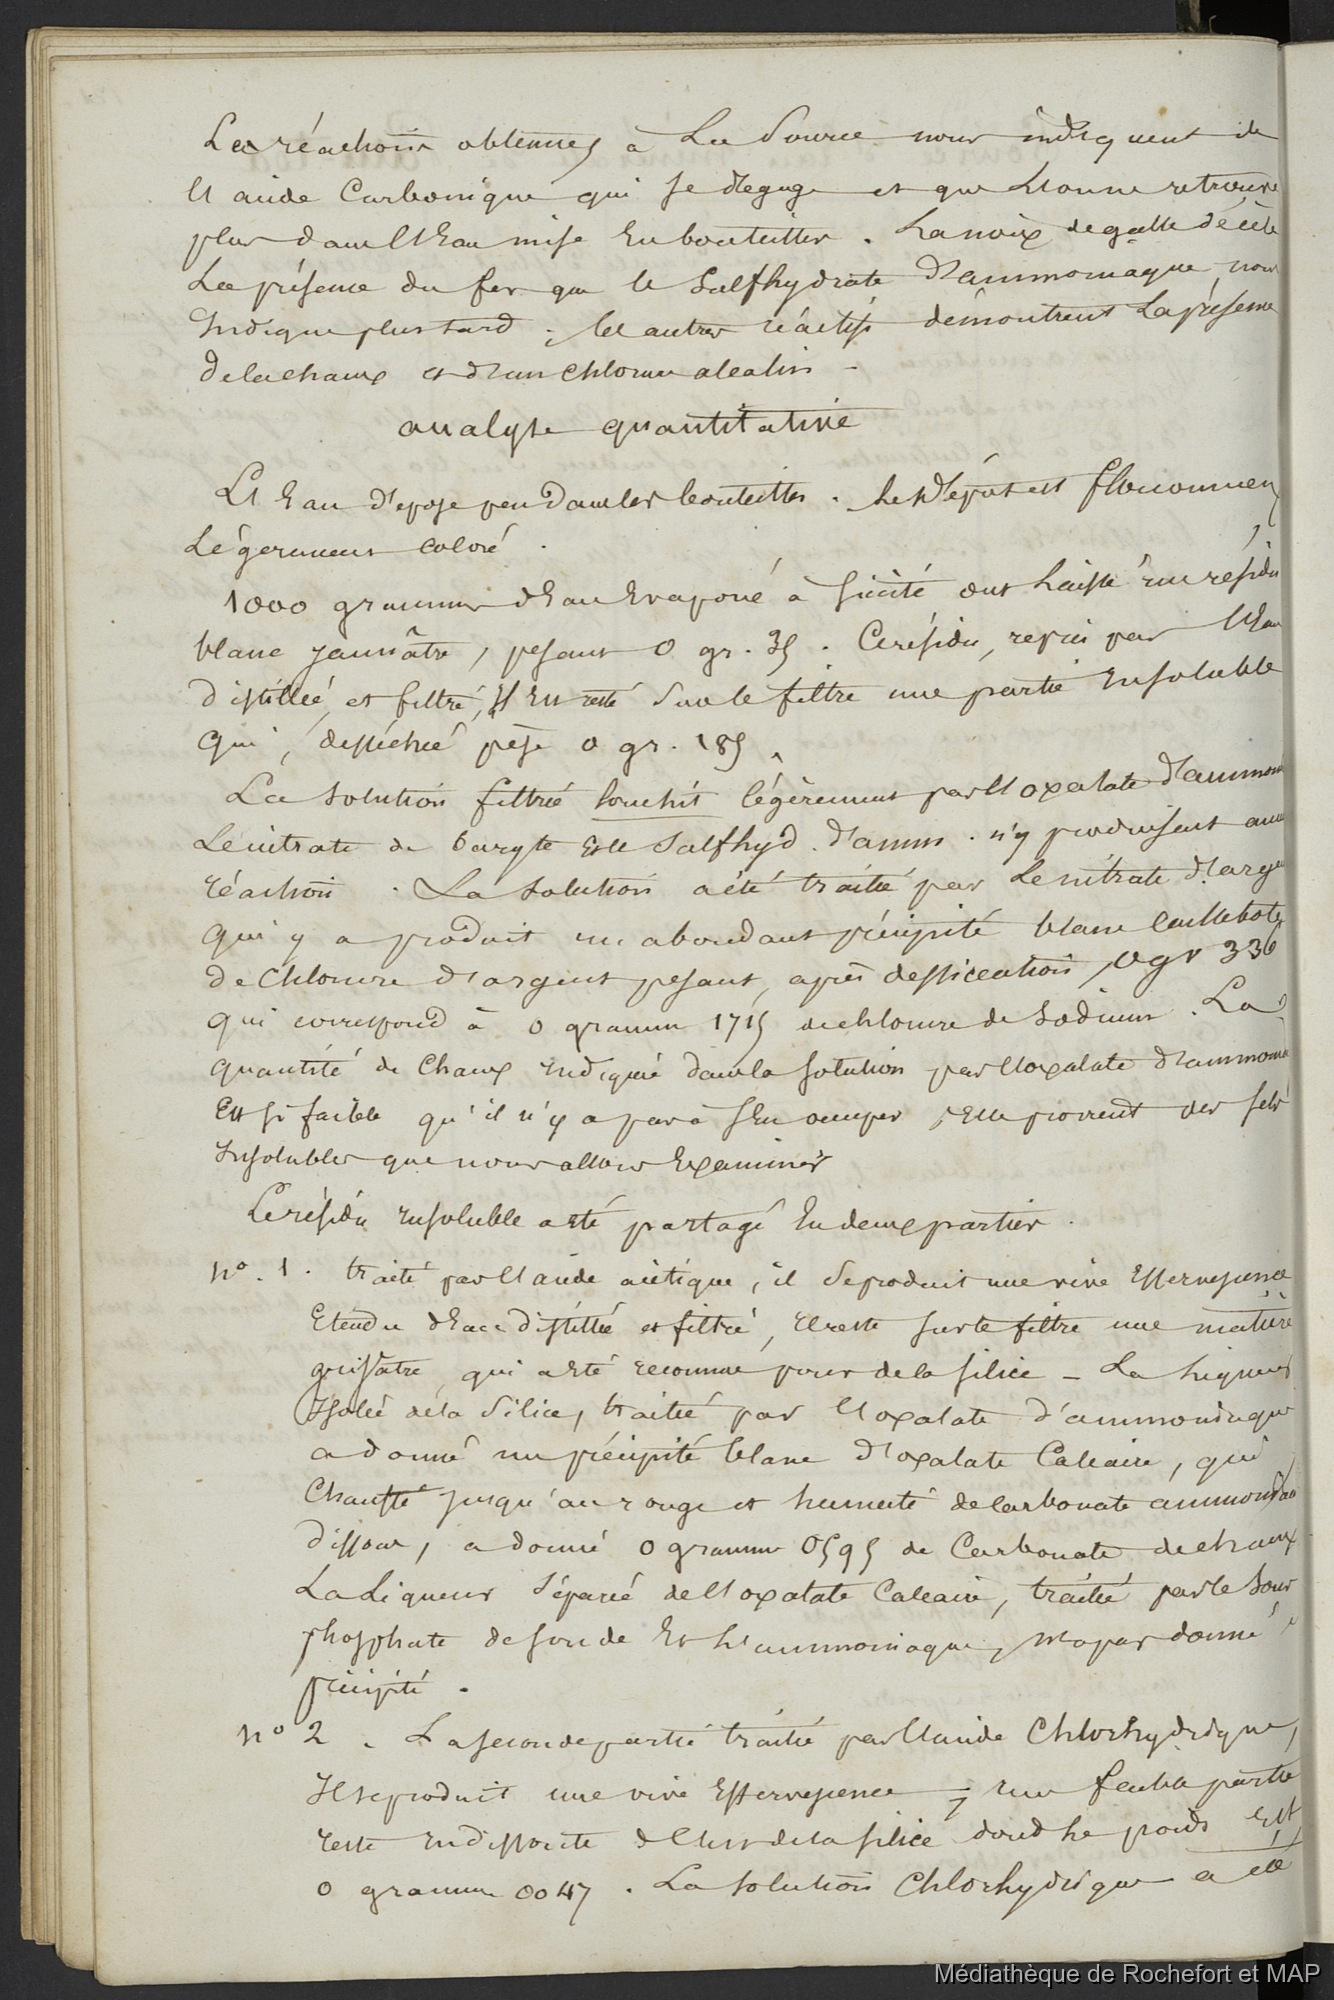 Les réactions obtenues à La Source nous indiquent de
l'acide Carbonique qui se dégage et que l'on ne retrouve
plus dans l'Eau mise En bouteilles . La noix de galle décèle
La présence du fer que le Sulfhydrate d'ammoniaque nous
Indique plus tard ; les autres réactifs démontrent La présence
de la chaux et d'un chlorure alcalin -
analyse quantitative
L'Eau dépose peu dans les bouteilles . Le dépôt est floconneux,
Légèrement coloré .
1000 grammes d'Eau Evaporé à siccité ont Laissé un résidu
blanc jaunâtre, pesant 0 gr. 35 . Ce résidu, repris par l'Eau
distillée, et filtré, Il En resté sur le filtre une partie Insoluble
qui, desséchée pèse 0 gr. 185
La solution filtrée louchit légèrement par l'oxalate d'ammoni
Le nitrate de baryte Et le Sulfhyd. d'amm. n'y produisent aucu
réaction . La solution a été traitée par Le nitrate d'argen
qui y a produit un abondant précipité blanc caillebotté
de Chlorure d'argent pesant, après dessiccation, 0 gr 336
qui correspond à 0 gramme 1715 de chlorure de Sodium . La
quantité de Chaux Indiquée dans la solution par l'oxalate d'ammonia
Est si faible qu'il n'y a pas à s'En occuper ; Elle provient des sels
Insolubles que nous allons Examiner
Le résidu Insoluble a Eté partagé En deux parties .
n° . 1 . traité par l'acide acétique, il se produit une vive Effervescence
Etendu d'Eau distillée et filtré, Il reste sur le filtre une matière
grisâtre qui a Eté reconnue pour de la silice - La Liqueur
Isolée de la Silice, traitée par l'oxalate d'ammoniaque
a donné un précipité blanc d'oxalate Calcaire, qui
Chauffé jusqu'au rouge et humecté de carbonate ammoniac
dissous, a donné 0 gramme 0595 de Carbonate de chaux
La Liqueur séparée de l'oxalate Calcaire, traitée par le sous
phosphate de soude Et L'ammoniaque, n'a pas donné
précipité .
n° 2 . La seconde partie traitée par l'acide Chlorhydrique,
Il se produit une vive Effervescence ; une faible partie
reste Indissoute c'est de la silice dont le poids Est
0 gramme 0047 . La solution Chlorhydrique a été
Médiathèque de Rochefort et MAP